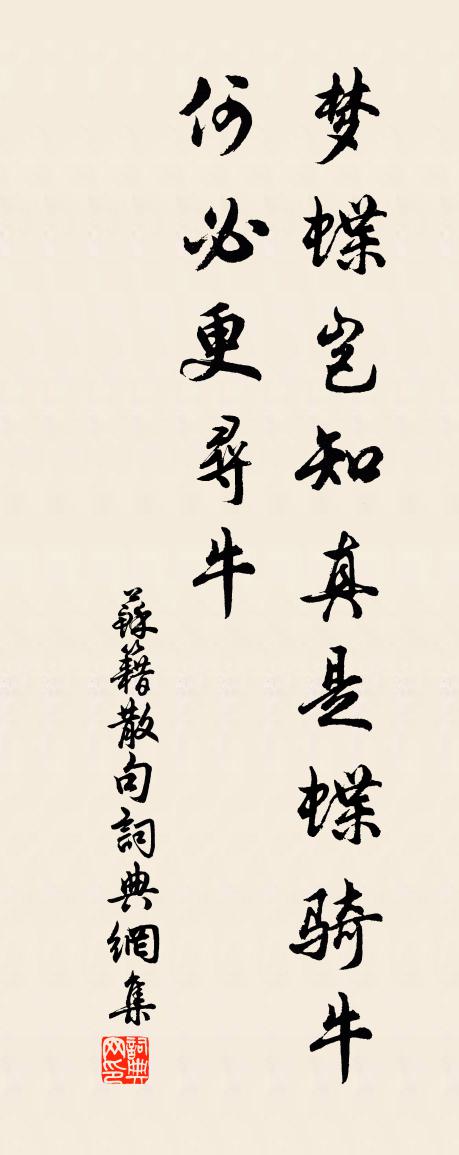 梦蝶岂知真是蝶骑牛
何必更尋牛
蘇籍散句詞典網集
詞典网印